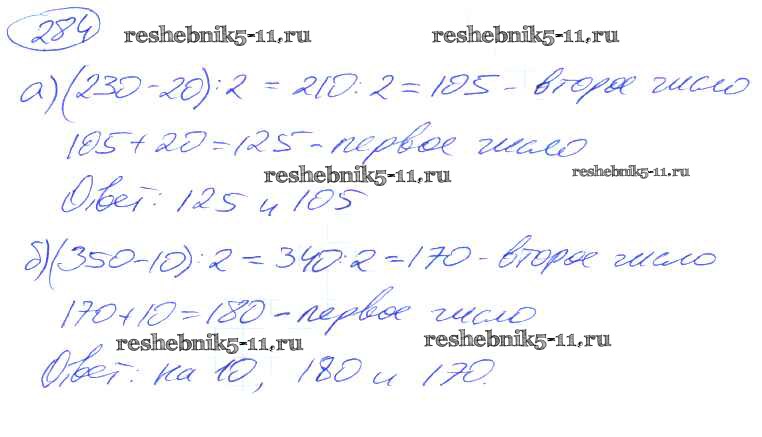 284 reshebnik5-11,ru reshebnik5-11,ru
а) (230-20):2 = 210:2 = 105 - второе число
105+20=125 - первое число
reshebnik5-11,ru reshebnik5-11,ru
Ответ: 125 и 105
б) (350-10):2 = 340:2 = 170 - второе число
170+10=180 - первое число
reshebnik5-11,ru reshebnik5-11,ru
Ответ: на 10, 180 и 170.